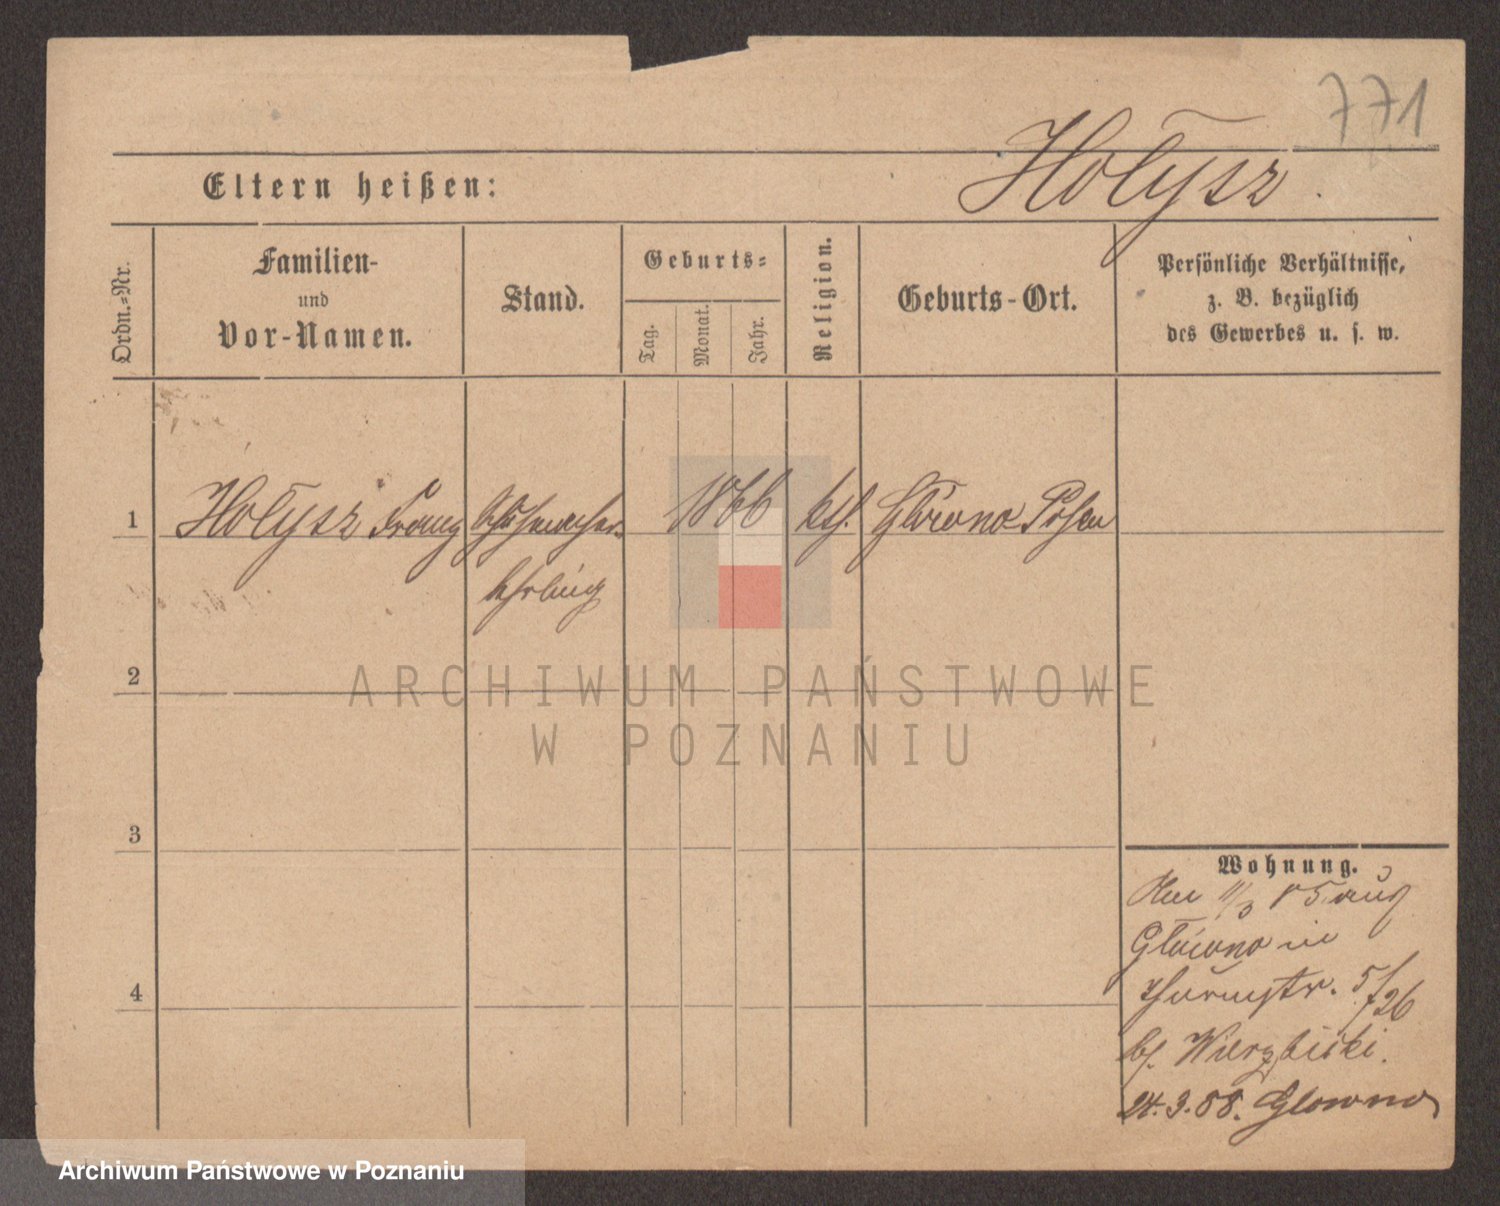 771
Hołysz
Eltern heißen:
Ordn.-Nr.
Familien-
und
Vor-Namen.
Stand.
Geburts-
Tag.
Monat.
Jahr.
Religion.
Geburts-Ort.
Persönliche Verhältnisse,
z. B. bezüglich
des Gewerbes u. s. w.
1
Hołysz Franz
Schuhmacher-
lehrling
1866
kth.
Główno Posen
2
3
4
Wohnung.
Am 11/3 85 aus
Główno in
5/726
bei Wierzbicki.
24.3.88. Glowno
ARCHIWUM PAŃSTWOWE
W POZNANIU
Archiwum Państwowe w Poznaniu